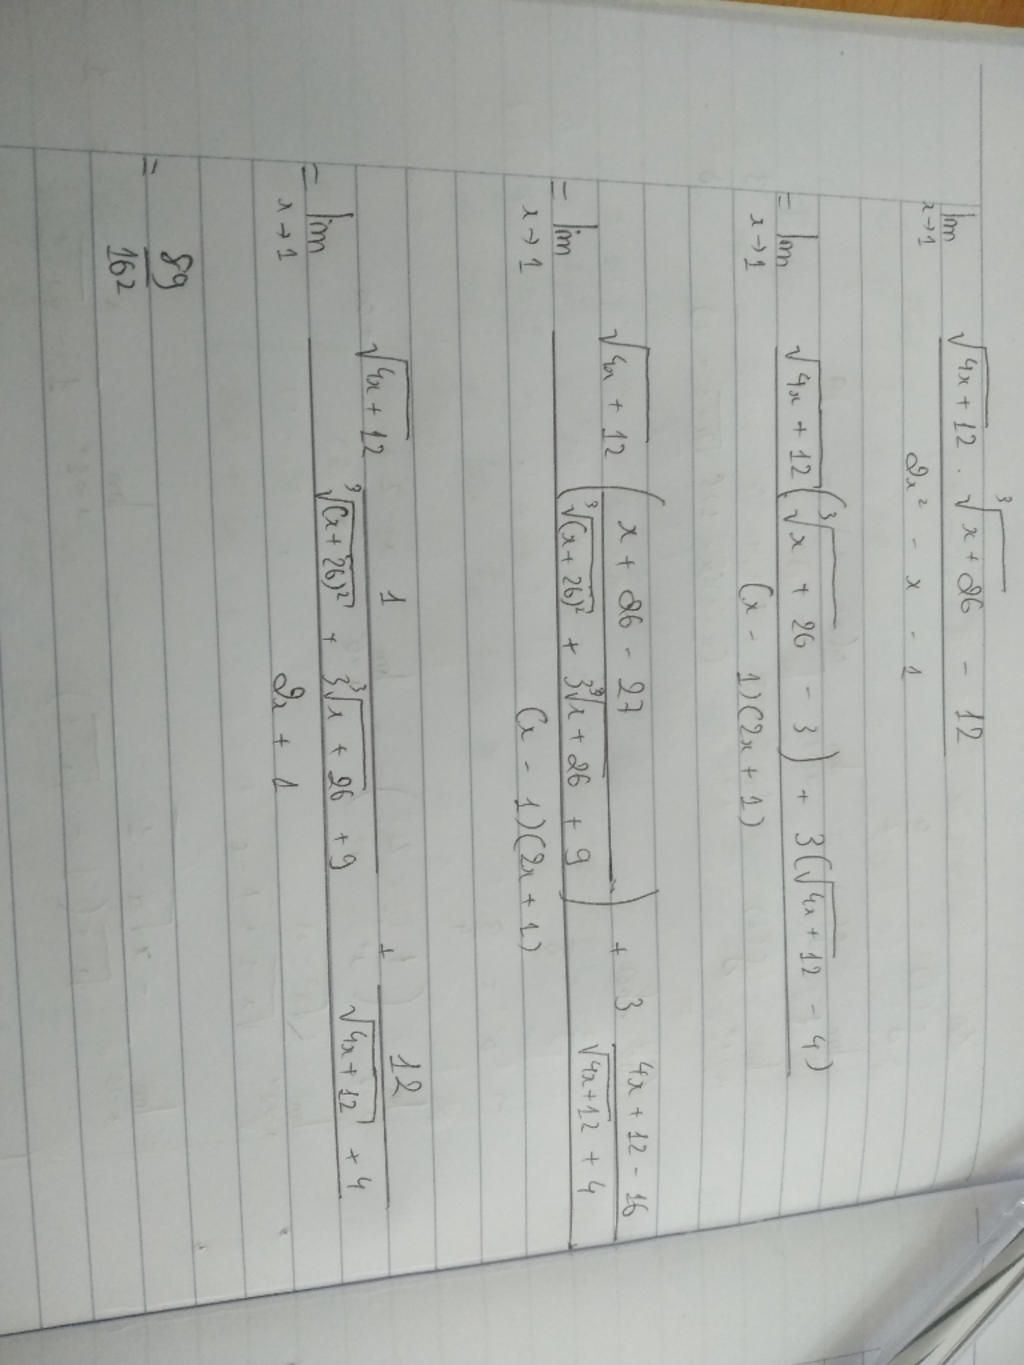 lim x→1 (√(4x + 12) · ∛(x + 26) − 12) / (2x² − x − 1)
= lim x→1 (√(4x + 12) (∛(x + 26) − 3) + 3(√(4x + 12) − 4)) / ((x − 1)(2x + 1))
= lim x→1 (√(4x + 12) ((x + 26 − 27) / (∛(x + 26)² + 3∛(x + 26) + 9)) + 3 (4x + 12 − 16) / (√(4x + 12) + 4)) / ((x − 1)(2x + 1))
= lim x→1 (√(4x + 12) 1 / (∛(x + 26)² + 3∛(x + 26) + 9) + 12 / (√(4x + 12) + 4)) / (2x + 1)
= 89 / 162